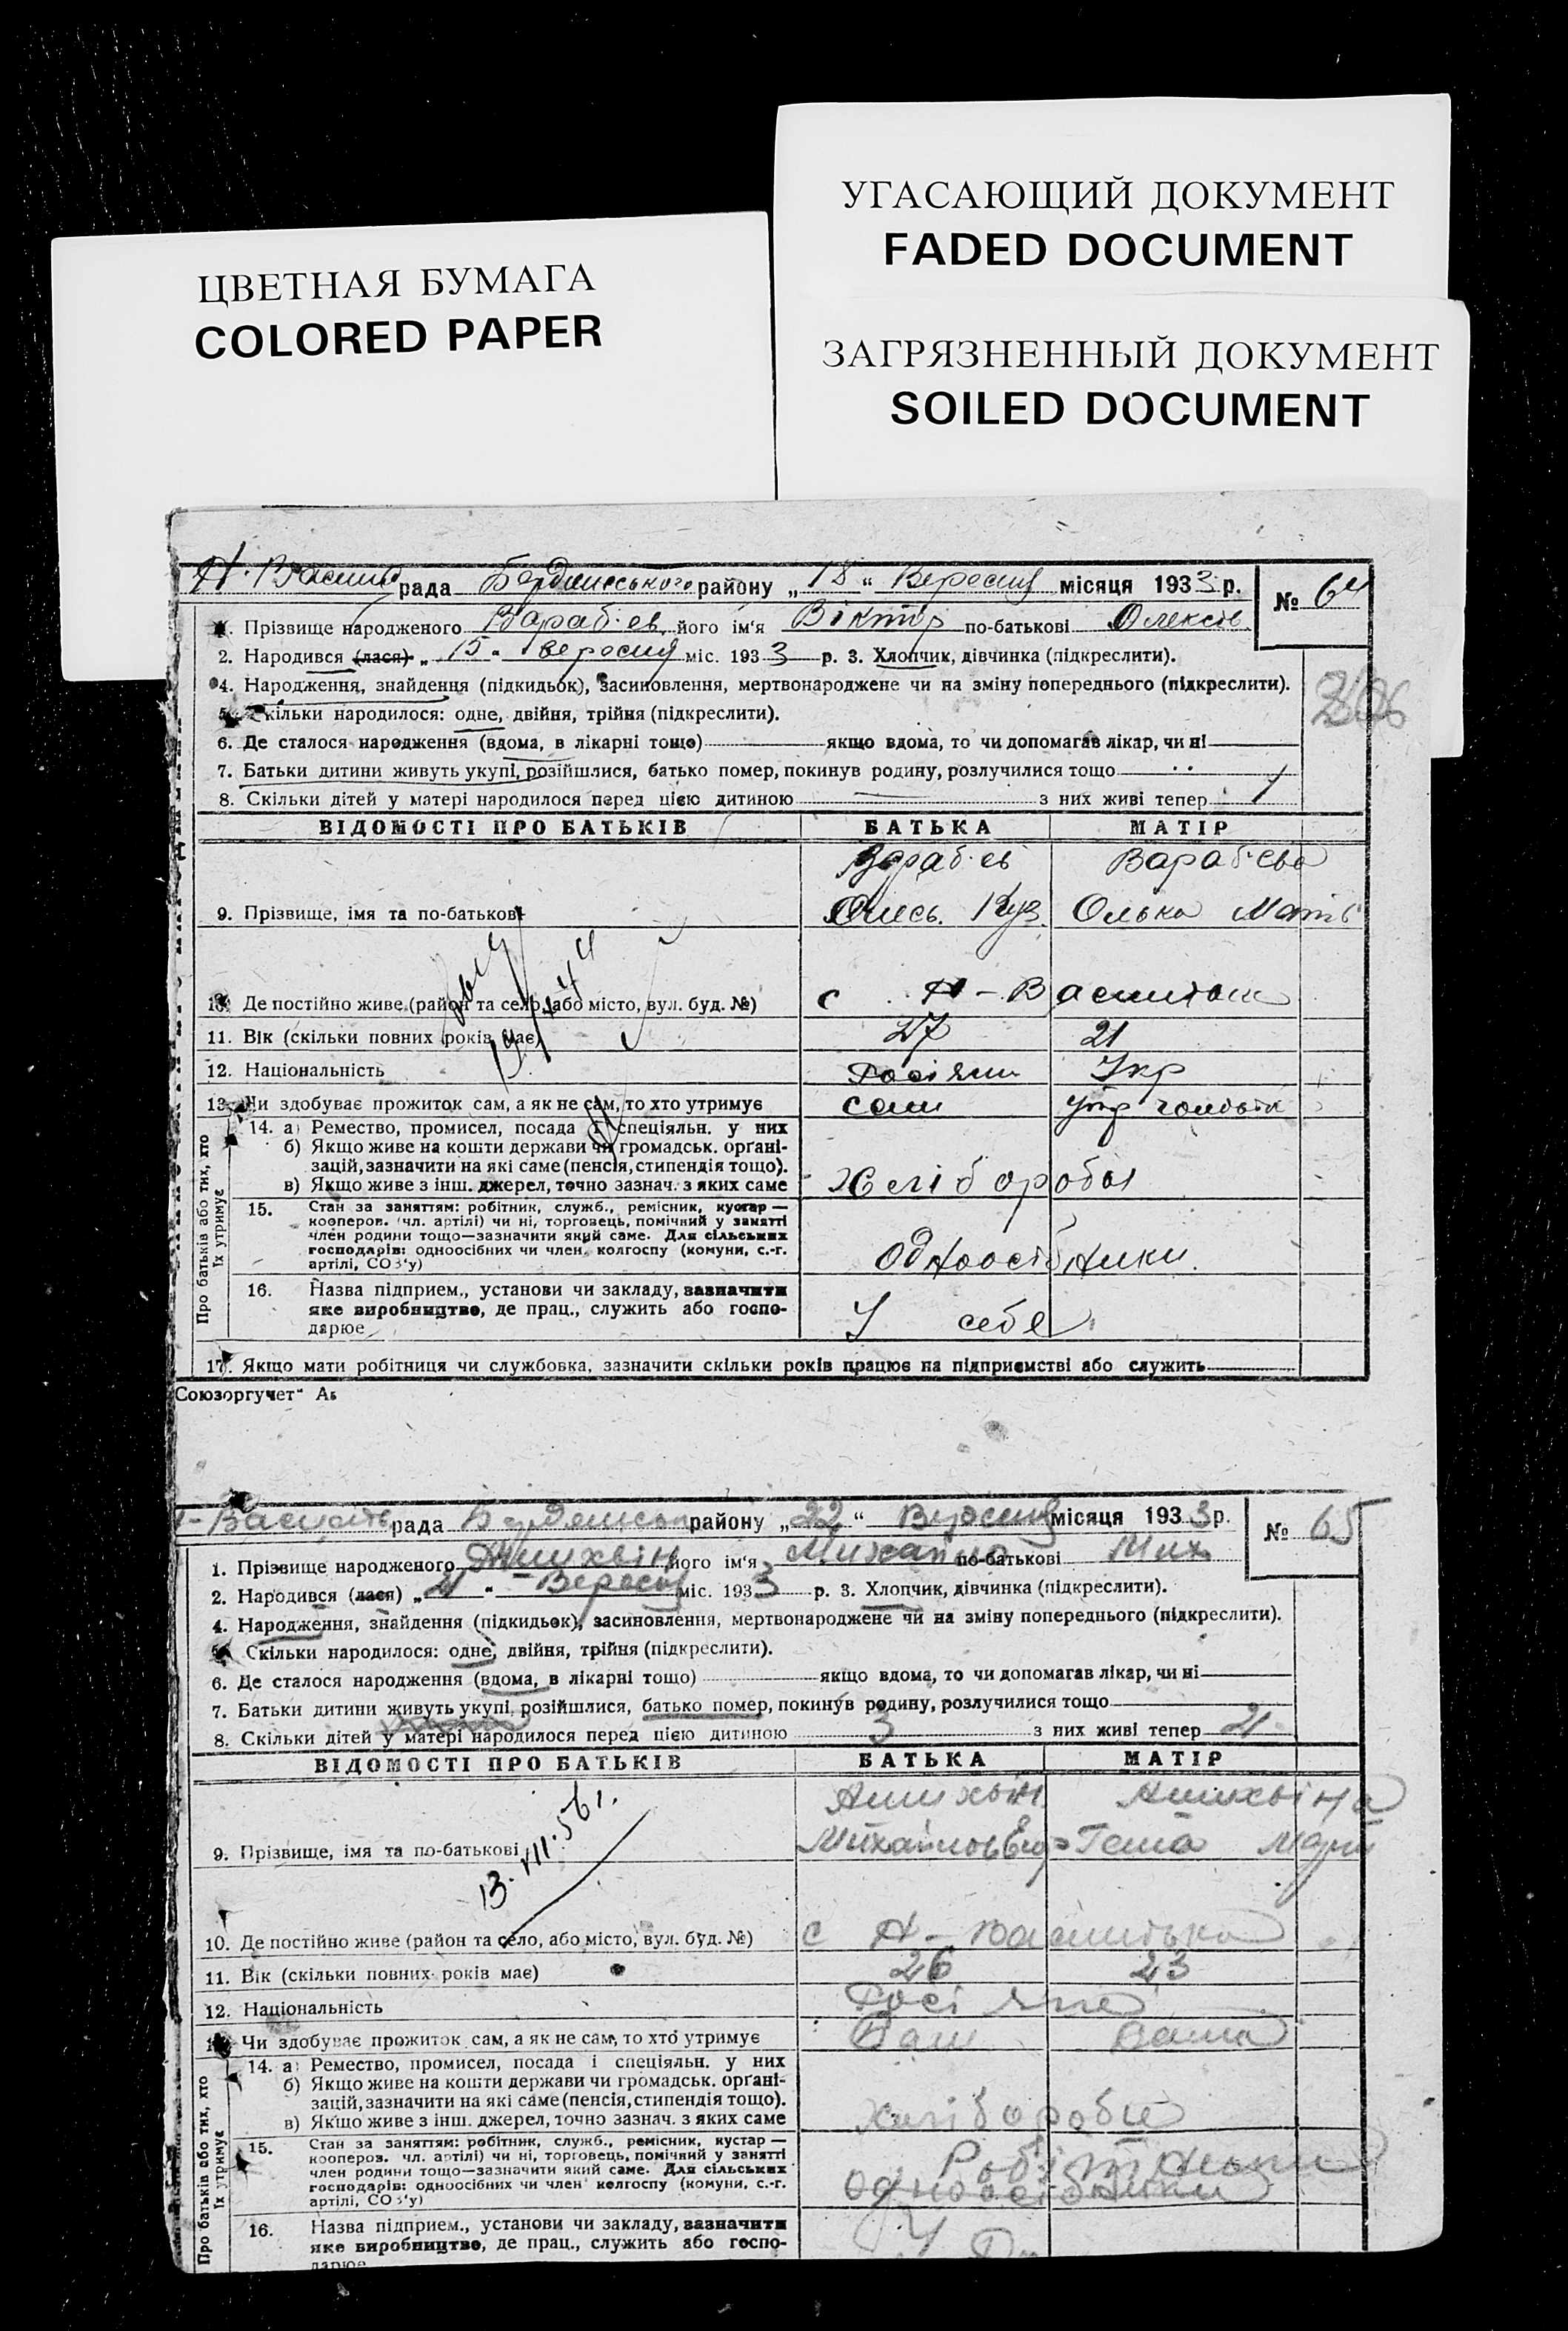 УГАСАЮЩИЙ ДОКУМЕНТ
FADED DOCUMENT
ЦВЕТНАЯ БУМАГА
COLORED PAPER
ЗАГРЯЗНЕННЫЙ ДОКУМЕНТ
SOILED DOCUMENT
рада району „18“ Вересня місяця 1933 р. № 64
1. Прізвище народженого Вараб'єв його ім'я Віктор по-батькові Олексів
2. Народився (лася) „15" вересня міс. 1933 р. 3. Хлопчик, дівчинка (підкреслити).
4. Народження, знайдення (підкидьок), засиновлення, мертвонароджене чи на зміну попереднього (підкреслити).
5. Скільки народилося: одне, двійня, трійня (підкреслити).
6. Де сталося народження (вдома, в лікарні тощо) якщо вдома, то чи допомагав лікар, чи ні
7. Батьки дитини живуть укупі, розійшлися, батько помер, покинув родину, розлучилися тощо
8. Скільки дітей у матері народилося перед цією дитиною — з них живі тепер 1
ВІДОМОСТІ ПРО БАТЬКІВ БАТЬКА МАТІР
Вараб'єв Вараб'єва
9. Прізвище, імя та по-батькові Олесь. Куз. Олька
10. Де постійно живе (район та село, або місто, вул. буд. №) с
11. Вік (скільки повних років має) 27 21
12. Національність Росіяни Укр
13. Чи здобуває прожиток сам, а як не сам, то хто утримує сам
Про батьків або тих, хто їх утримує
14. а) Ремество, промисел, посада і спеціяльн. у них
б) Якщо живе на кошти держави чи громадськ. орґані-
зацій, зазначити на які саме (пенсія, стипендія тощо).
в) Якщо живе з інш. джерел, точно зазнач. з яких саме Хлібороби
15. Стан за заняттям: робітник, служб., ремісник, кустар —
кооперов. (чл. артілі) чи ні, торговець, помічний у занятті
член родини тощо—зазначити який саме. Для сільських
господарів: одноосібних чи член. колгоспу (комуни, с.-г.
артілі, СОЗ'у) Одноосібники.
16. Назва підприєм., установи чи закладу, зазначити
яке виробництво, де прац., служить або госпо-
дарює У себе
17. Якщо мати робітниця чи службовка, зазначити скільки років працює на підприємстві або служить
Союзоргучет"
рада району „22“ Вересня місяця 1933 р. № 65
1. Прізвище народженого його ім'я Михайло по-батькові Мих
2. Народився (лася) „21" Вересня міс. 1933 р. 3. Хлопчик, дівчинка (підкреслити).
4. Народження, знайдення (підкидьок), засиновлення, мертвонароджене чи на зміну попереднього (підкреслити).
5. Скільки народилося: одне, двійня, трійня (підкреслити).
6. Де сталося народження (вдома, в лікарні тощо) якщо вдома, то чи допомагав лікар, чи ні
7. Батьки дитини живуть укупі, розійшлися, батько помер, покинув родину, розлучилися тощо
8. Скільки дітей у матері народилося перед цією дитиною 3 з них живі тепер
ВІДОМОСТІ ПРО БАТЬКІВ БАТЬКА МАТІР
9. Прізвище, імя та по-батькові
10. Де постійно живе (район та село, або місто, вул. буд. №) с
11. Вік (скільки повних років має) 26 23
12. Національність Росіяне
13. Чи здобуває прожиток сам, а як не сам, то хто утримує Сам Сама
Про батьків або тих, хто їх утримує
14. а) Ремество, промисел, посада і спеціяльн. у них
б) Якщо живе на кошти держави чи громадськ. орґані-
зацій, зазначити на які саме (пенсія, стипендія тощо).
в) Якщо живе з інш. джерел, точно зазнач. з яких саме Хлібороби
15. Стан за заняттям: робітник, служб., ремісник, кустар —
кооперов. чл. артілі) чи ні, торговець, помічний у занятті
член родини тощо—зазначити який саме. Для сільських
господарів: одноосібних чи член колгоспу (комуни, с.-г.
артілі, СОЗ'у) одноосібники
16. Назва підприєм., установи чи закладу, зазначити
яке виробництво, де прац., служить або госпо-
дарює